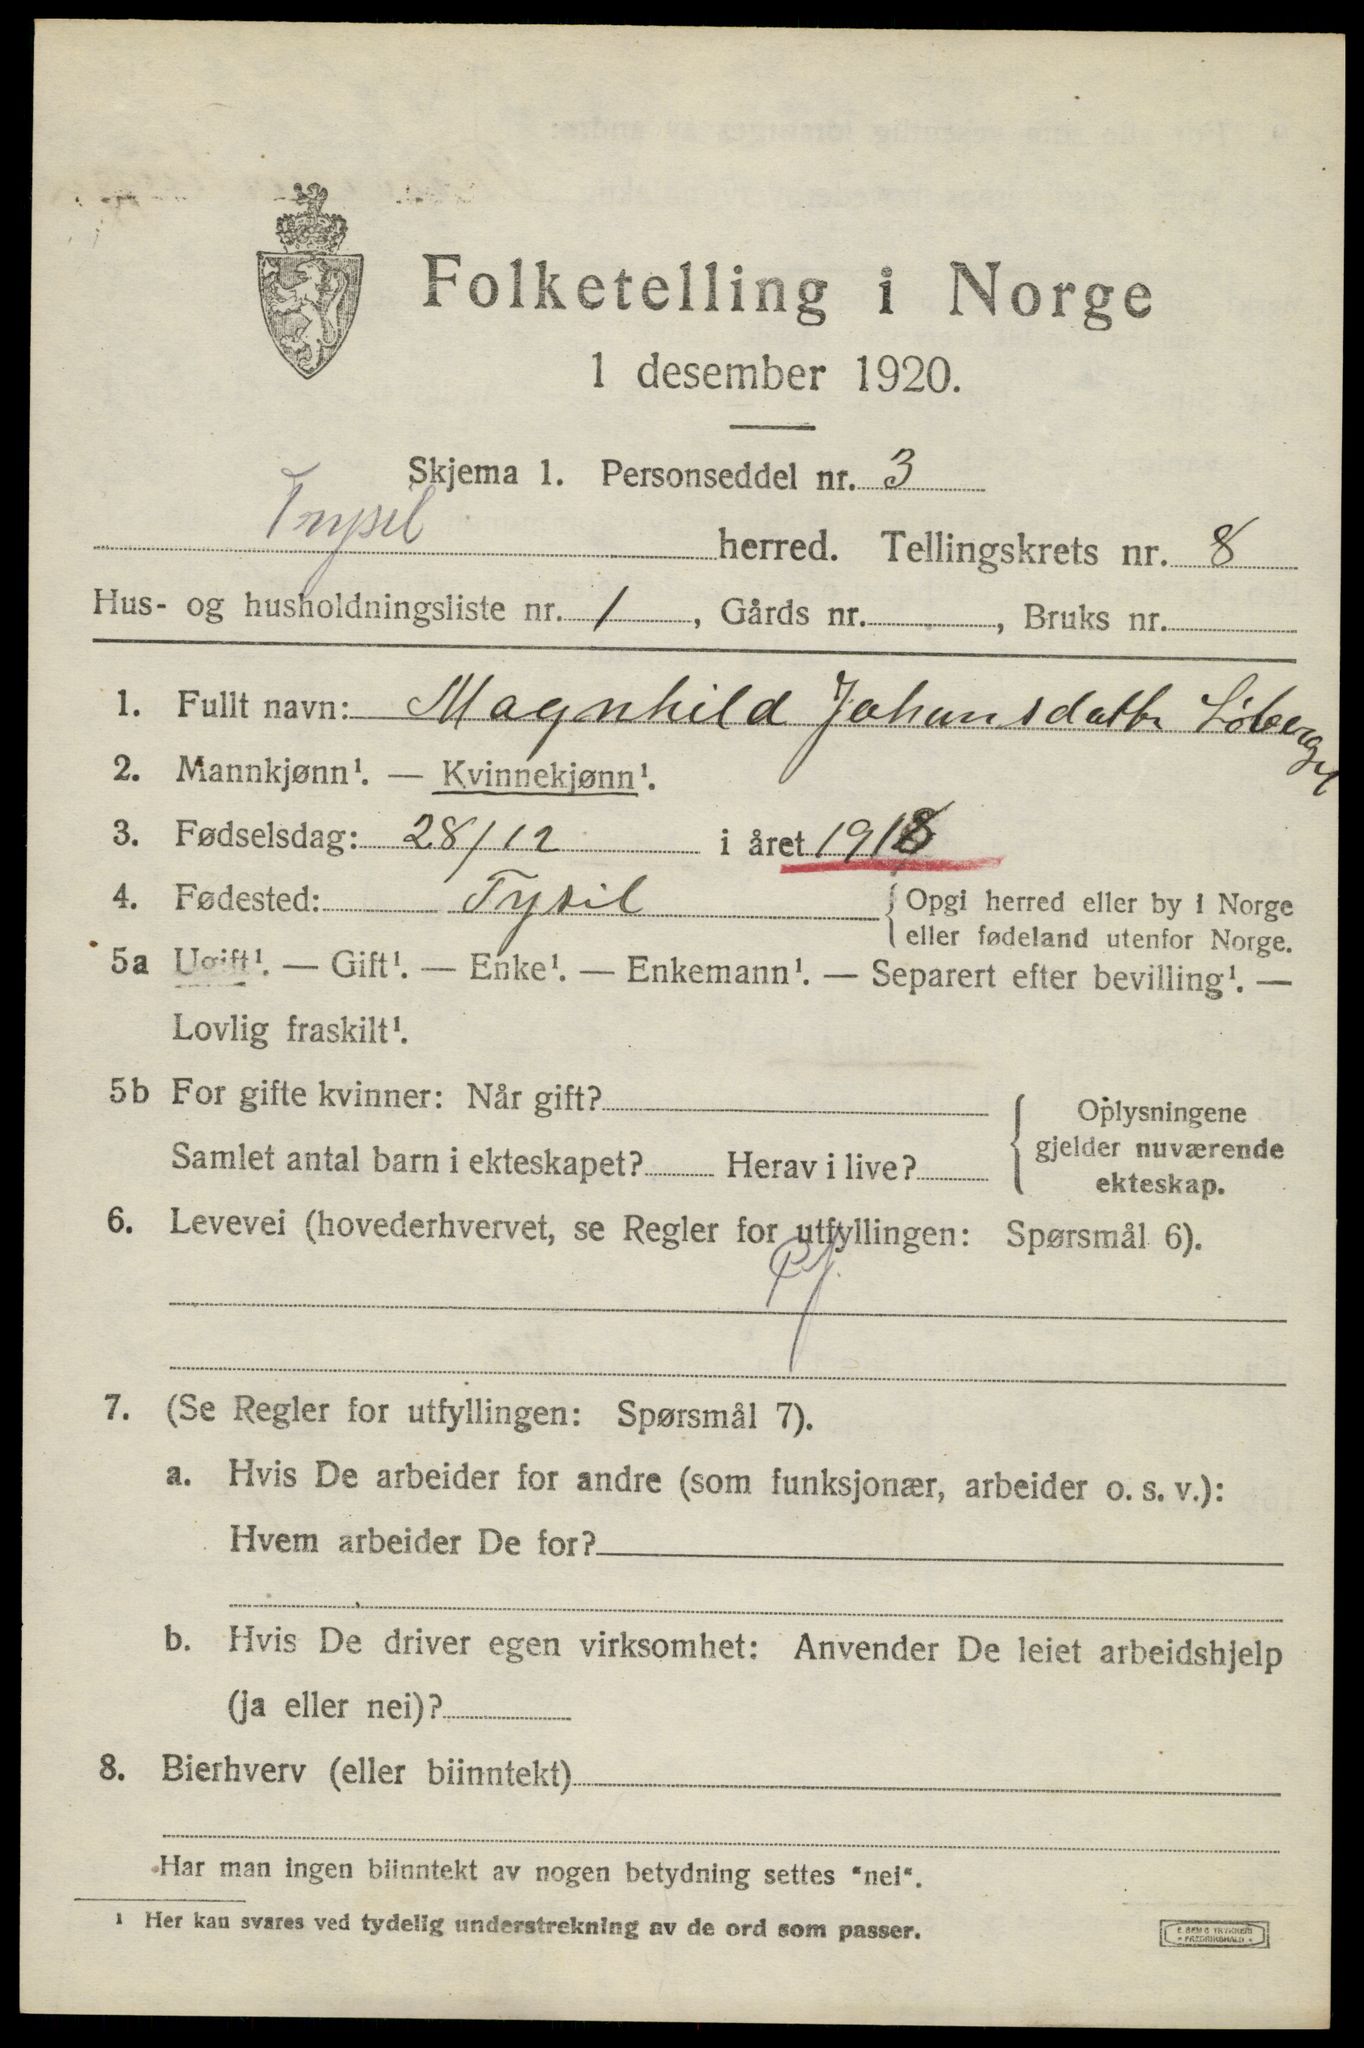 Folketelling i Norge
1 desember 1920.
Skjema 1. Personseddel nr. 3
Trysil herred. Tellingskrets nr. 8
Hus- og husholdningsliste nr. 1, Gårds nr. , Bruks nr.
1. Fullt navn: Magnhild Johansdatter
2. Mannkjønn¹. — Kvinnekjønn¹.
3. Fødselsdag: 28/12 i året 1918
4. Fødested: Tysil {Opgi herred eller by i Norge
eller fødeland utenfor Norge.
5a Ugift¹. — Gift¹. — Enke¹. — Enkemann¹. — Separert efter bevilling¹. —
Lovlig fraskilt¹.
5b For gifte kvinner: Når gift?
Samlet antal barn i ekteskapet? Herav i live?
{Oplysningene
gjelder nuværende
ekteskap.
6. Levevei (hovederhvervet, se Regler for utfyllingen: Spørsmål 6).
7. (Se Regler for utfyllingen: Spørsmål 7).
a. Hvis De arbeider for andre (som funksjonær, arbeider o. s. v.):
Hvem arbeider De for?
b. Hvis De driver egen virksomhet: Anvender De leiet arbeidshjelp
(ja eller nei)?
8. Bierhverv (eller biinntekt)
Har man ingen biinntekt av nogen betydning settes "nei".
¹ Her kan svares ved tydelig understrekning av de ord som passer.